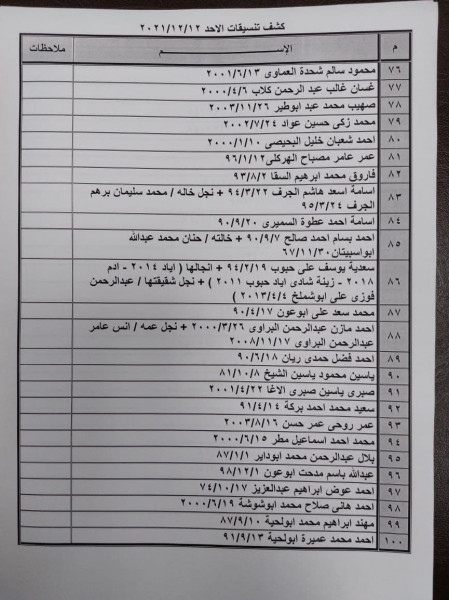 كشف تنسيقات الاحد ٢٠٢١/١٢/١٢
م الإســـم ملاحظات
٧٦ محمود سالم شحدة العماوى ٢٠٠١/٦/١٣
٧٧ غسان غالب عبد الرحمن كلاب ٢٠٠٠/٤/٦
٧٨ صهيب محمد عيد ابوطير ٢٠٠٣/١١/٢٦
٧٩ محمد زكى حسين عواد ٢٠٠٢/٧/٢٤
٨٠ احمد شعبان خليل البحيصى ٢٠٠٠/١/١٠
٨١ عمر عامر مصباح الهركلى ٩٦/١/١٢
٨٢ فاروق محمد ابرهيم السقا ٩٣/٨/٢
٨٣ اسامة اسعد هاشم الجرف ٩٤/٣/٢٢ + نجل خاله / محمد سليمان برهم
الجرف ٩٥/٣/٢٤
٨٤ اسامة احمد عطوة السميرى ٩٠/٩/٢٠
٨٥ احمد بسام احمد صالح ٩٠/٩/٧ + خالته / حنان محمد عبدالله
ابواسبيتان ٦٧/١١/٣٠
سعدية يوسف على حبوب ٩٤/٢/١٩ + انجالها ( اياد ٢٠١٤ - ادم
٨٦ ٢٠١٨ - زينة شادى اياد حبوب ٢٠١١ ) + نجل شقيقتها / عبدالرحمن
فوزى على ابوشملخ ٢٠١٣/٤/٤ )
٨٧ محمد سعد على ابوعون ٩٠/٤/١٧
٨٨ احمد مازن عبدالرحمن البراوى ٢٠٠٠/٣/٢٦ + نجل عمه / انس عامر
عبدالرحمن البراوى ٢٠٠٨/١١/١٧
٨٩ احمد فضل حمدى ريان ٩٠/٦/١٨
٩٠ ياسين محمود ياسين الشيخ ٨١/١٠/٨
٩١ صبرى ياسين صبرى الاغا ٢٠٠١/٤/٢٢
٩٢ سعيد محمد احمد بركة ٩١/٤/١٤
٩٣ عمر روحى عمر حسن ٢٠٠٣/٨/١٦
٩٤ محمد احمد اسماعيل مطر ٢٠٠٠/٦/١٥
٩٥ بلال عبدالرحمن محمد ابوداير ٨٧/١/١
٩٦ عبدالله باسم مدحت ابوعون ٩٨/١٢/١
٩٧ احمد عوض ابراهيم عبدالعزيز ٧٤/١٠/١٧
٩٨ احمد هانى صلاح محمد ابوشوشة ٢٠٠٠/٦/١٩
٩٩ مهند ابراهيم محمد ابولحية ٨٧/٩/١٠
١٠٠ احمد محمد عميرة ابولحية ٩١/٩/١٣